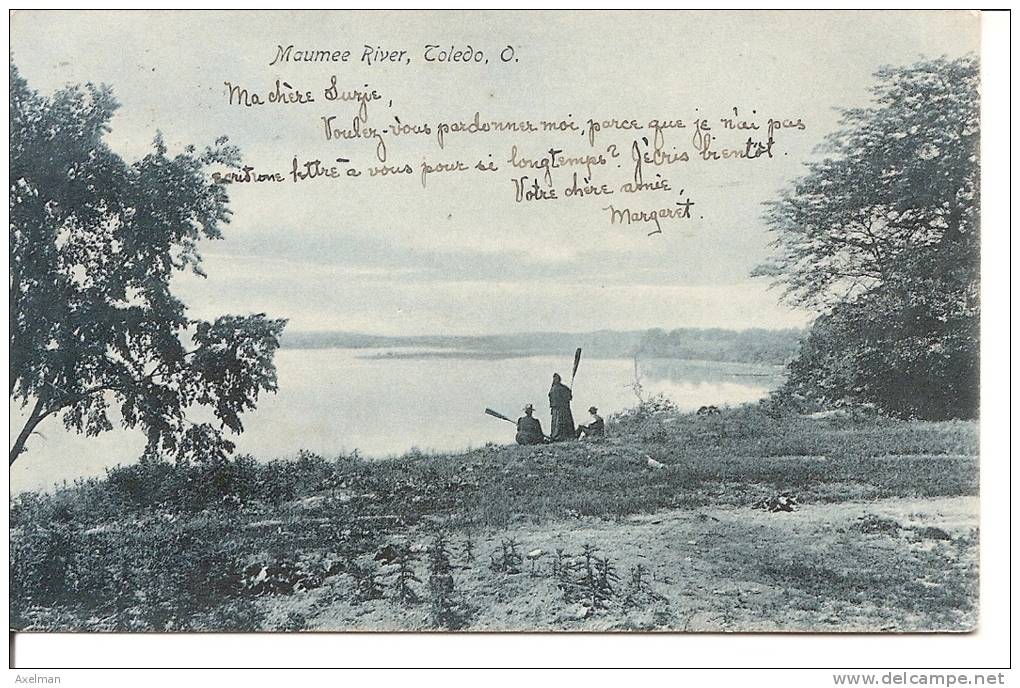 Maumee River, Toledo, O.
Ma chère Suzie,
Voulez-vous pardonner moi, parce que je n'ai pas
ecrit une lettre à vous pour si longtemps? J'écris bientôt.
Votre chère amie,
Margaret.
Axelman
http://www.delcampe.net